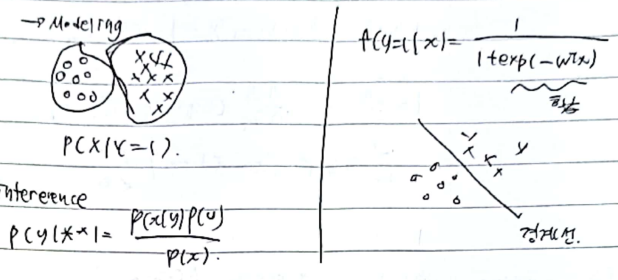 → Modelling
P(X|Y=1).
Inference
P(y|x*)= p(x|y)p(y) / p(x).
P(y=1|x)= 1 / 1+exp(-wᵀx)
경계선.